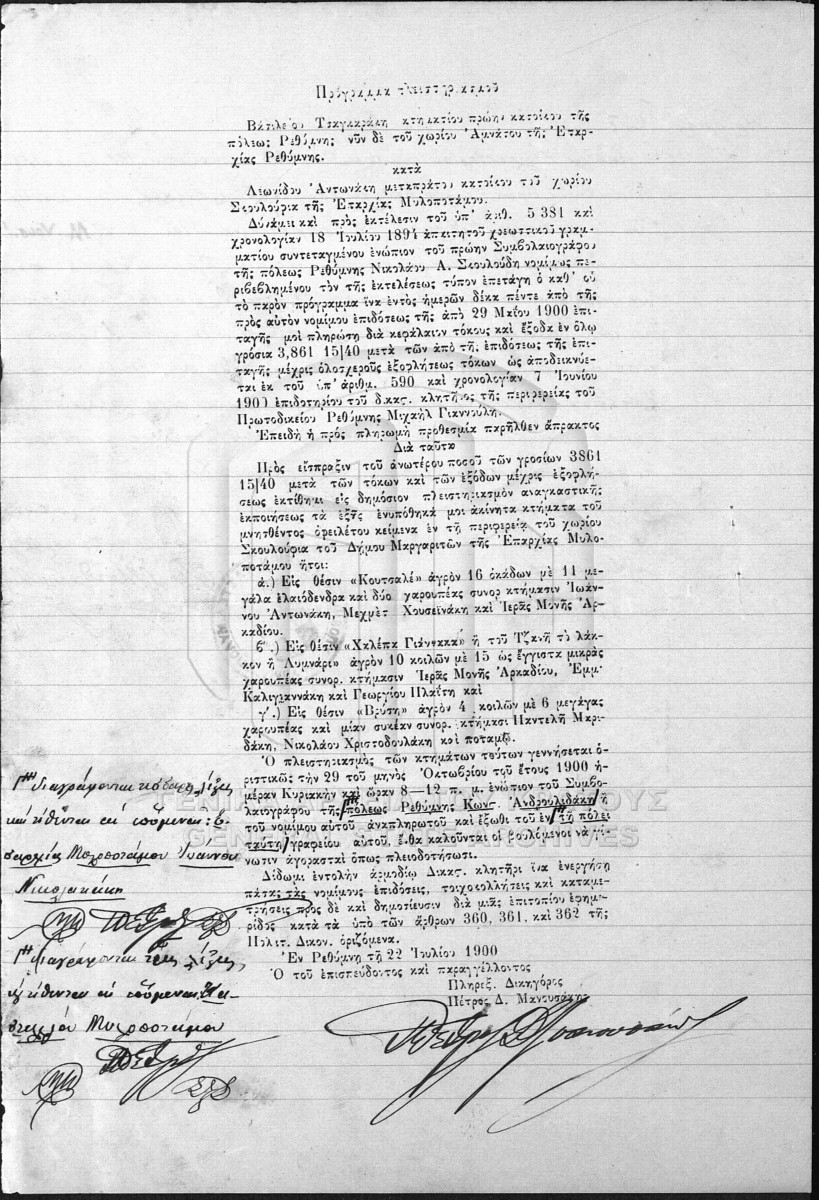 Πρόγραμμα πλειστηριασμοῦ
Βασιλείου Τσαγκαράκη κτηματίου πρώην κατοίκου τῆς
πόλεως Ρεθύμνης νῦν δὲ τοῦ χωρίου Ἀμνάτου τῆς Ἐπαρ-
χίας Ρεθύμνης.
κατὰ
Λεωνίδου Ἀντωνάκη μεταπράτου κατοίκου τοῦ χωρίου
Σκουλούφια τῆς Ἐπαρχίας Μυλοποτάμου.
Δυνάμει καὶ πρὸς ἐκτέλεσιν τοῦ ὑπ' ἀριθ. 5381 καὶ
χρονολογίαν 18 Ἰουλίου 1894 ἀπαιτητοῦ χρεωστικοῦ γραμ-
ματίου συντεταγμένου ἐνώπιον τοῦ πρώην Συμβολαιογράφου
τῆς πόλεως Ρεθύμνης Νικολάου Α. Σκουλούδη νομίμως πε-
ριβεβλημένου τὸν τῆς ἐκτελέσεως τύπον ἐπετάγη ὁ καθ' οὗ
τὸ παρὸν πρόγραμμα ἵνα ἐντὸς ἡμερῶν δέκα πέντε ἀπὸ τῆς
πρὸς αὐτὸν νομίμου ἐπιδόσεως τῆς ἀπὸ 29 Μαΐου 1900 ἐπι-
ταγῆς μοὶ πληρώσῃ διὰ κεφάλαιον τόκους καὶ ἔξοδα ἐν ὅλῳ
γρόσια 3,861 15|40 μετὰ τῶν ἀπὸ τῆς ἐπιδόσεως τῆς ἐπι-
ταγῆς μέχρις ὁλοσχεροῦς ἐξοφλήσεως τόκων ὡς ἀποδεικνύε-
ται ἐκ τοῦ ὑπ' ἀριθμ. 590 καὶ χρονολογίαν 7 Ἰουνίου
1900 ἐπιδοτηρίου τοῦ δικας. κλητῆρος τῆς περιφερείας τοῦ
Πρωτοδικείου Ρεθύμνης Μιχαὴλ Γιαννούλη.
Ἐπειδὴ ἡ πρός πληρωμὴ προθεσμία παρῆλθεν ἄπρακτος
Διὰ ταῦτα
Πρὸς εἴσπραξιν τοῦ ἀνωτέρου ποσοῦ τῶν γροσίων 3861
15|40 μετὰ τῶν τόκων καὶ τῶν ἐξόδων μέχρις ἐξοφλή-
σεως ἐκτίθημι εἰς δημόσιον πλειστηριασμὸν ἀναγκαστικῆς
ἐκποιήσεως τὰ ἑξῆς ἐνυπόθηκά μοι ἀκίνητα κτήματα τοῦ
μνησθέντος ὀφειλέτου κείμενα ἐν τῇ περιφερείᾳ τοῦ χωρίου
Σκουλούφια τοῦ Δήμου Μαργαριτῶν τῆς Ἐπαρχίας Μυλο-
ποτάμου ἤτοι:
ά.) Εἰς θέσιν «Κουτσαλέ» ἀγρὸν 16 ὀκάδων μὲ 11 με-
γάλα ἐλαιόδενδρα καὶ δύο χαρουπέας συνορ κτήμασιν Ἰωάν-
νου Ἀντωνάκη, Μεχμὲτ Χουσεϊνάκη καὶ Ἱερᾶς Μονῆς Ἀρ-
καδίου.
β'.) Εἰς θέσιν «Χαλέπα Γιάννακα» ἢ τοῦ Τζανῆ τὸ λάκ-
κον ἢ Λυμνάρι» ἀγρὸν 10 κοιλῶν μὲ 15 ὡς ἔγγιστα μικρὰς
χαρουπέας συνορ. κτήμασιν Ἱερᾶς Μονῆς Ἀρκαδίου, Ἐμμ.
Καλιγιαννάκη καὶ Γεωργίου Πλαΐτη καὶ
γ'.) Εἰς θέσιν «Βρύση» ἀγρὸν 4 κοιλῶν μὲ 6 μεγάγας
χαρουπέας καὶ μίαν συκέαν συνορ. κτήμασι Παντελῆ Μαρι-
δάκη, Νικολάου Χριστοδουλάκη καὶ ποταμῷ.
Ὁ πλειστηριασμὸς τῶν κτημάτων τούτων γεννήσεται ὁ-
ριστικῶς τὴν 29 τοῦ μηνὸς Ὀκτωβρίου τοῦ ἔτους 1900 ἡ-
μέραν Κυριακὴν καὶ ὥραν 8—12 π. μ. ἐνώπιον τοῦ Συμβο-
λαιογράφου τῆς πόλεως Ρεθύμνης Κωνς. Ἀνδρουλιδάκη ἢ
τοῦ νομίμου αὐτοῦ ἀναπληρωτοῦ καὶ ἔξωθι τοῦ ἐν τῇ πόλει
ταύτῃ γραφείου αὐτοῦ, ἔνθα καλοῦνται οἱ βουλόμενοι νὰ γί-
νωσιν ἀγορασταὶ ὅπως πλειοδοτήσωσι.
Δίδωμι ἐντολὴν ἁρμοδίῳ Δικας. κλητῆρι ἵνα ἐνεργήσῃ
πάσας τὰς νομίμους ἐπιδόσεις, τοιχοκολλήσεις καὶ καταμε-
τρήσεις πρὸς δὲ καὶ δημοσίευσιν διὰ μιᾶς ἐπιτοπίου ἐφημε-
ρίδος κατὰ τὰ ὑπὸ τῶν ἄρθρων 360, 361, καὶ 362 τῆς
Πολιτ. Δικον. ὁριζόμενα.
Ἐν Ρεθύμνῃ τῇ 22 Ἰουλίου 1900
Ὁ τοῦ ἐπισπεύδοντος καὶ παραγγέλλοντος
Πληρεξ. Δικηγόρος
Πέτρος Δ. Μανουσάκης
διαγράφονται λέξεις
καὶ τίθενται αἱ ἑπόμεναι: ἐ-
παρχίας Μυλοποτάμου Ἰωάννου
Νικολακάκη
διαγράφονται τρεῖς λέξεις
καὶ τίθενται αἱ ἑπόμεναι
Μυλοποτάμου
ΓΕΝΙΚΑ ΑΡΧΕΙΑ ΤΟΥ ΚΡΑΤΟΥΣ
GENERAL STATE ARCHIVES